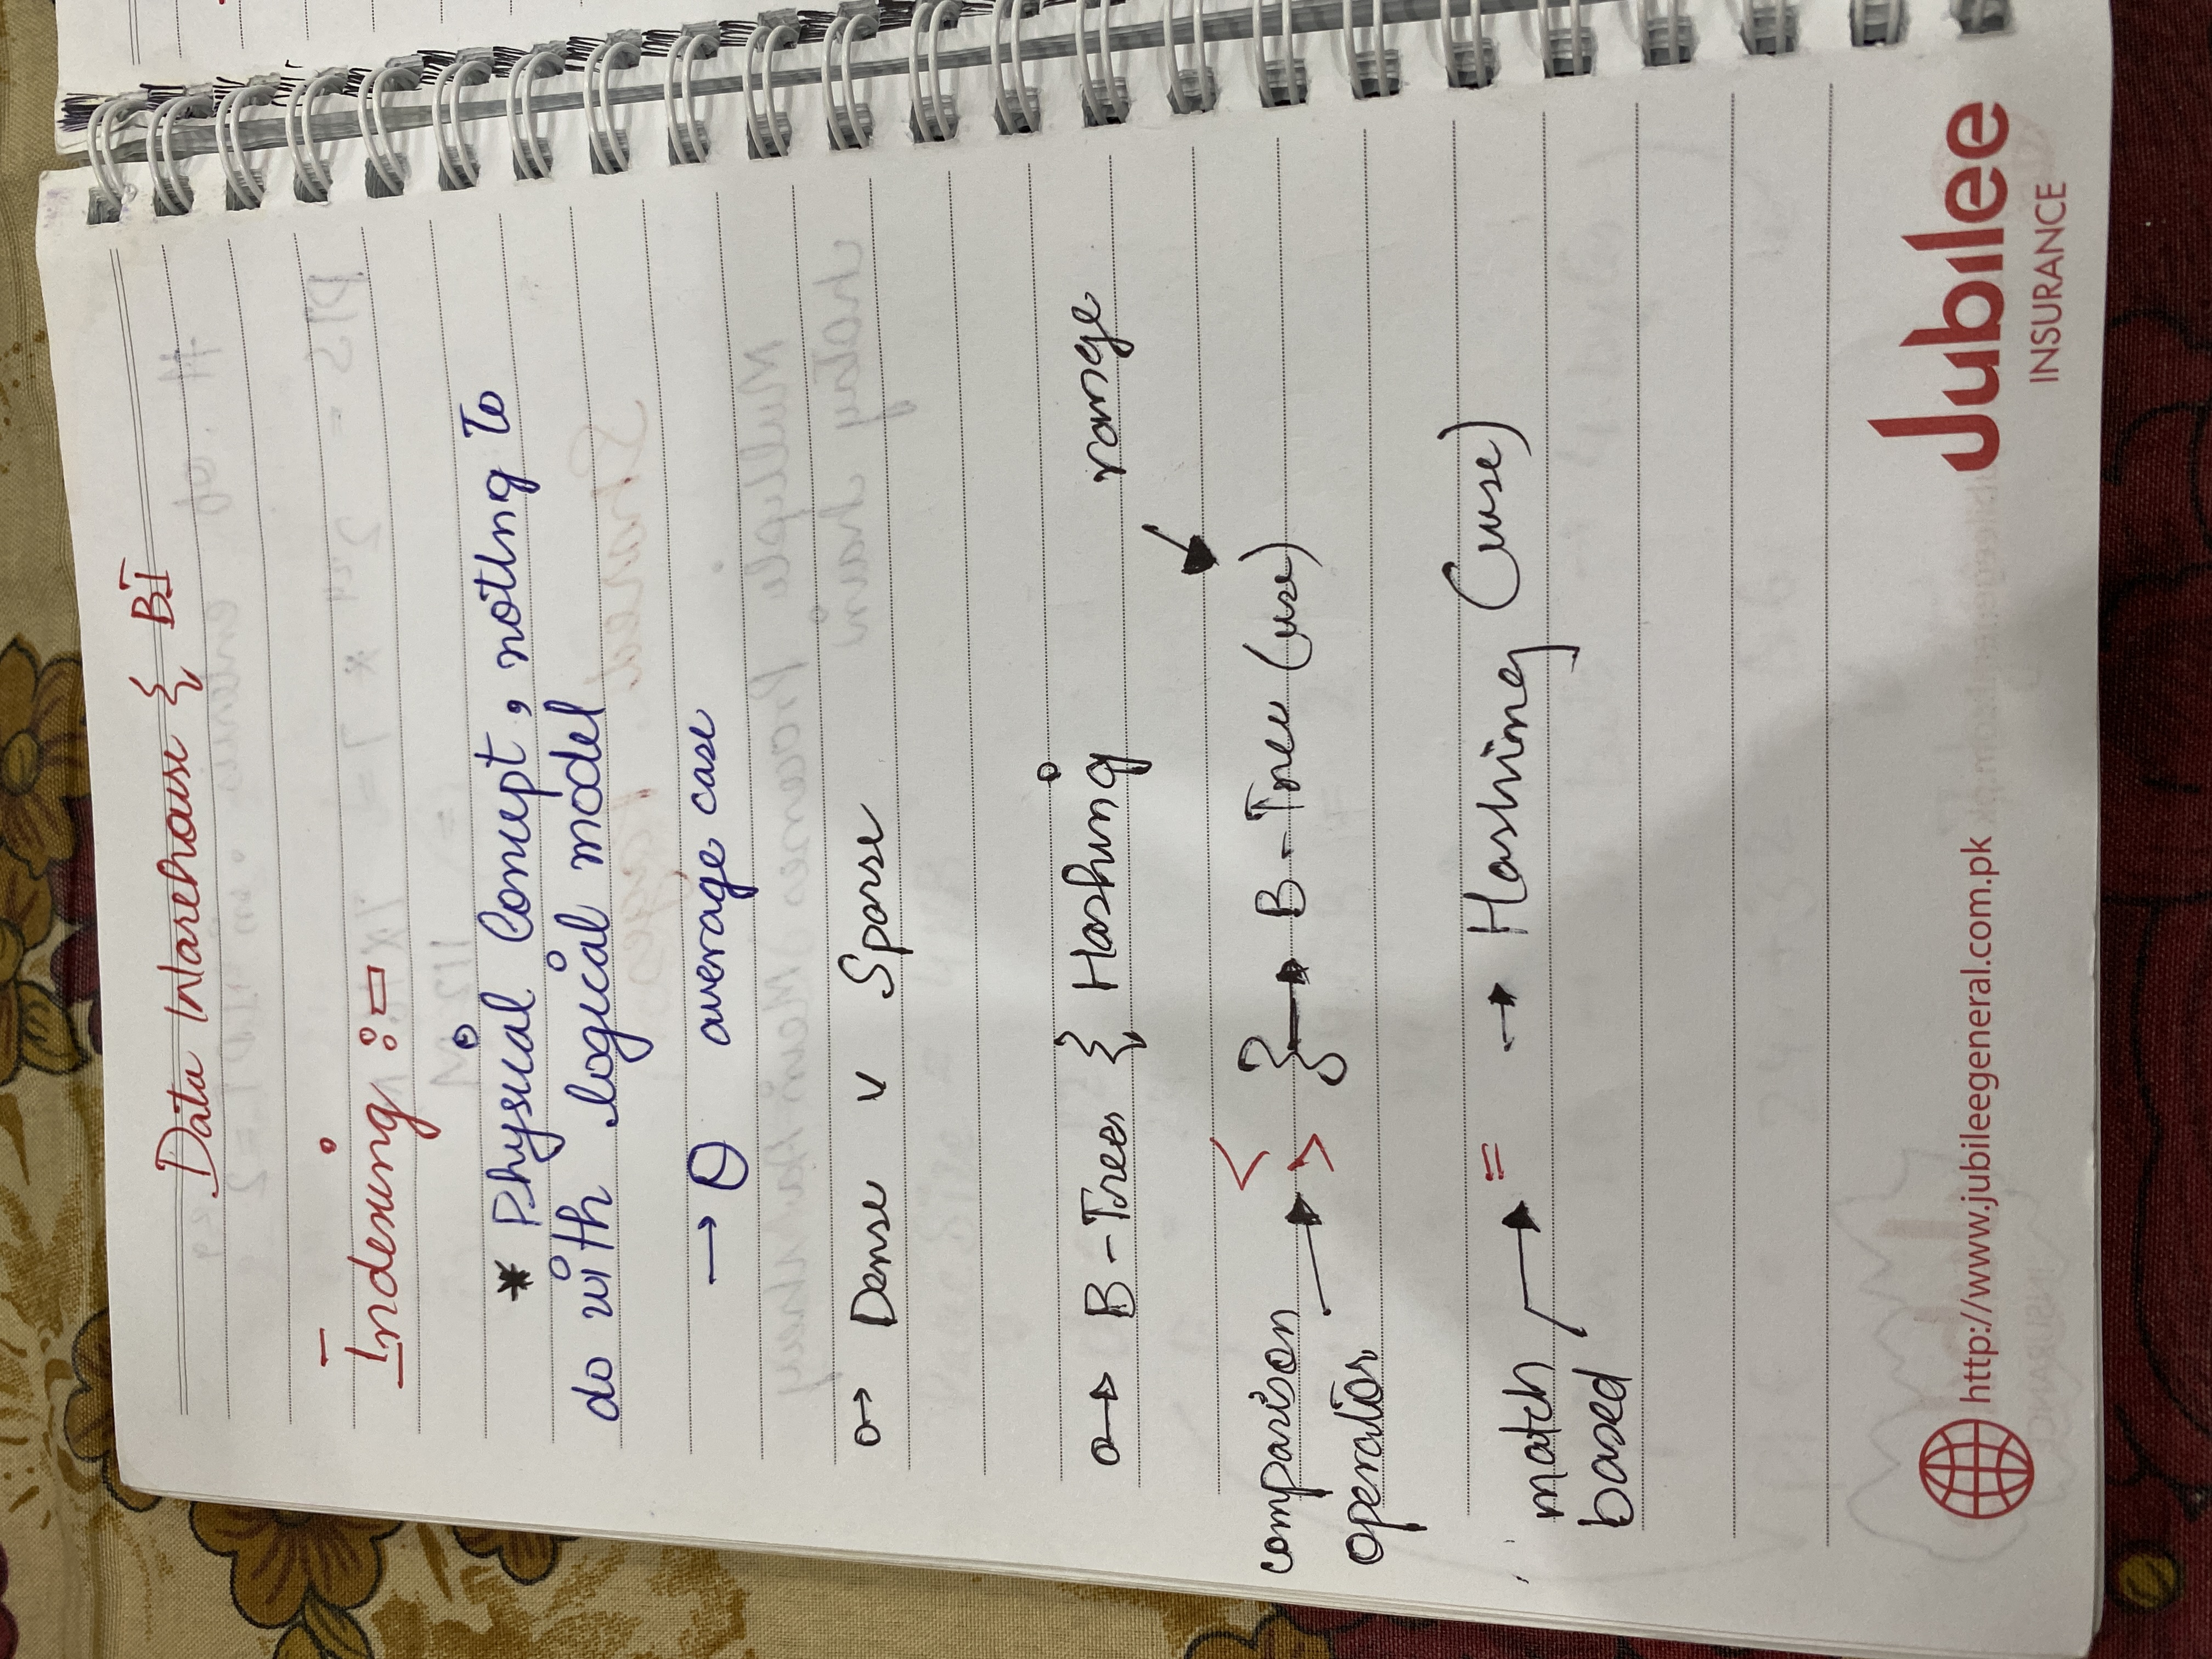 Data Warehouse & BI
Indexing :-
* Physical Concept, noting to
do with logical model
→ θ average case
→ Dense v Sparse
→ B-Trees & Hashing
range
comparison
operator
<
>
} → B-Tree (use)
match
based
= → Hashing (use)
http://www.jubileegeneral.com.pk
Jubilee
INSURANCE